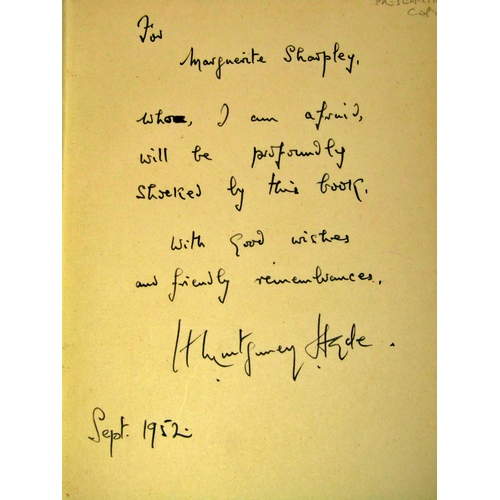 For
Marguerite Sharpley,
who, I am afraid,
will be profoundly
shocked by this book.
With good wishes
and friendly remembrances.
H Montgomery Hyde.
Sept. 1952.